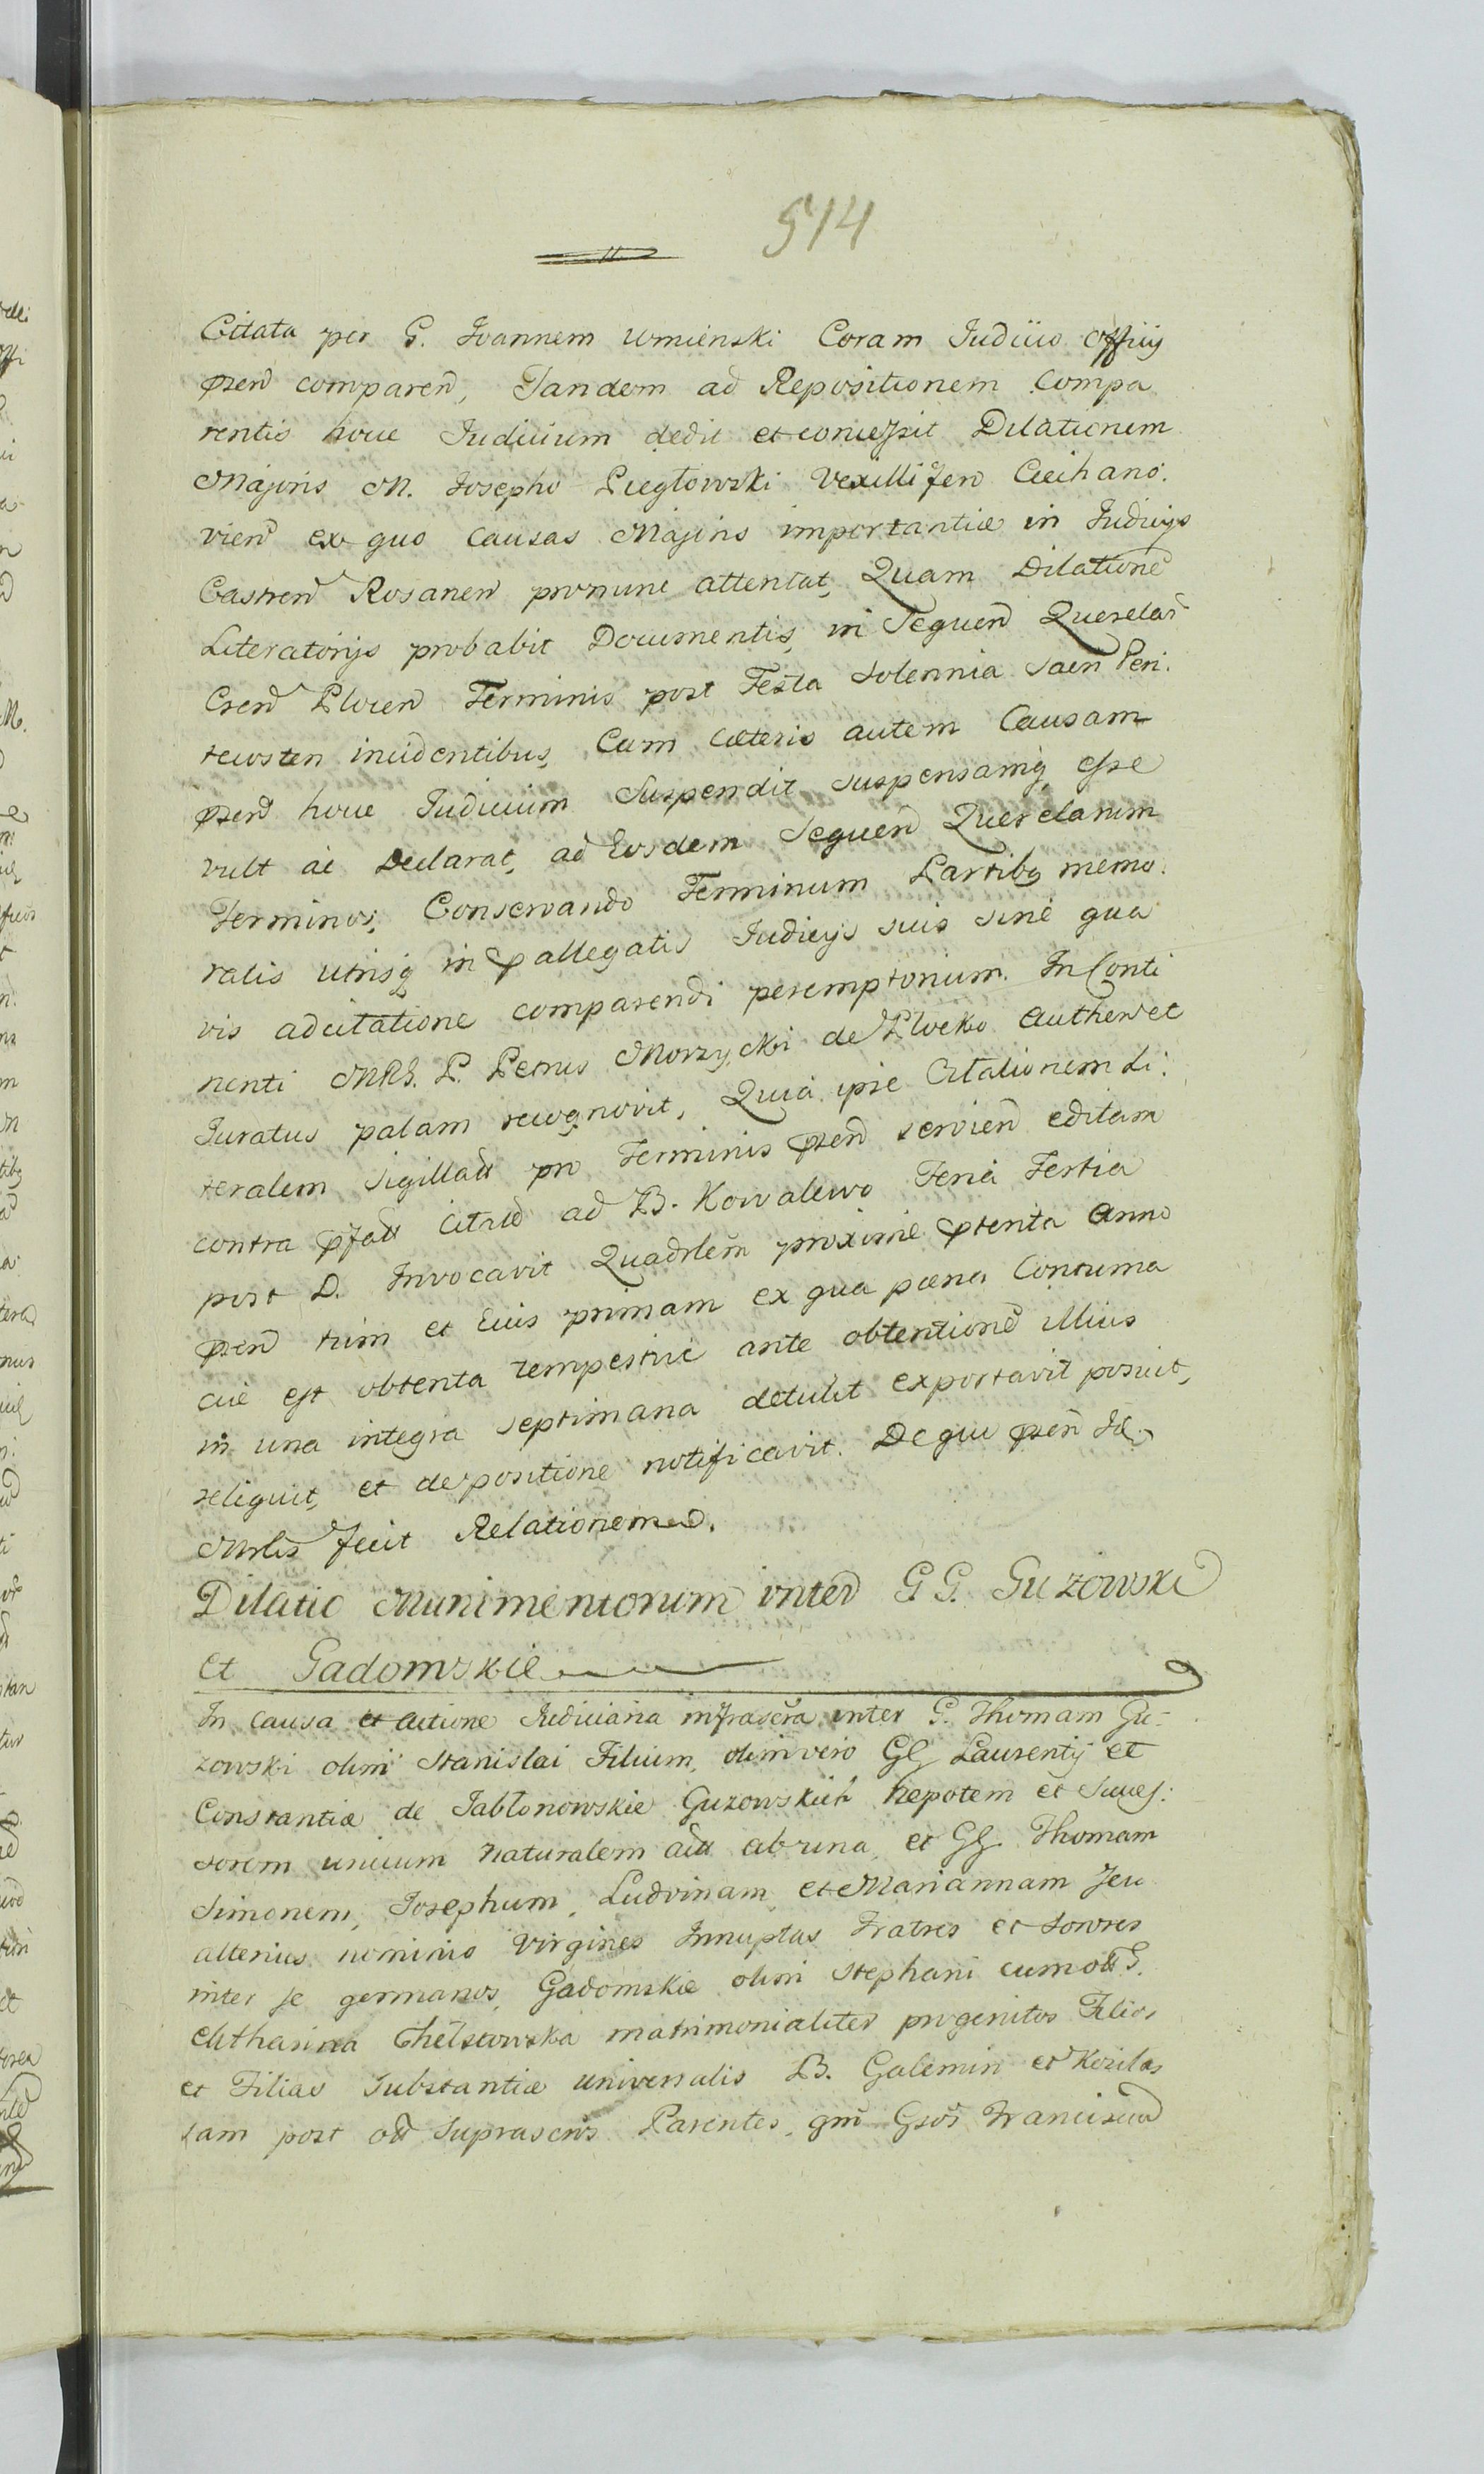 514
Citata per G. Joannem Umienski Coram Judicio Officij
pñ comparen, Tandem ad Repositionem Compa
rentis hocce Judicium dedit et concessit Dilationem
Majoris M. Josepho Pieglowski Vexillifero Ciechano:
vien ex quo Causas Majoris importantiæ in Judicijs
Castren Rosanen pronunc attentat, Quam Dilatione
Literatorijs probabit Documentis, in Sequen Querelar
Csen Plocen Terminis post Festa Solennia Sacri Pen:
tecosten incidentibus, Cum cæteris autem Causam
pñ hocce Judicium Suspendit suspensamq esse
vult ac Declarat, ad Eosdem Sequen Querelarum
Terminos, Conservando Terminum Partibq memo:
ratis utrisq in pallegatis Judicijs suis sine qua
vis adcitatione comparendi peremptorium. In Conti
nenti MRS. P. Petrus Morzycki de Plocko Authen et
Juratus palam recognovit, Quia ipse Citationem Li:
teralem Sigillatt pro Terminis pñ servien editam
contra pfatt Citat ad B. Kowalewo Feria Tertia
post D. Invocavit Quadrlem proxime pterita Anno
pñ rum et Eius primam ex qua pæna Contuma
ciæ est obtenta tempestive ante obtentione illius
in una integra septimana detulit exportavit posuit,
reliquit, et depositione notificavit. De quo pñ
Mrlis fecit Relationem.
Dilatio Munimentorum inter G G. Guzowski
et Gadomskie
In Causa et Actione Judiciaria infrascra inter G. Thomam Gu-
zowski olim Stanislai Filium, olim vero GG Laurentij et
Constantiæ de Jablonowskie Guzowskich Nepotem et Succes:
sorem unicum naturalem Att ab una, et GG. Thomam
Simonem, Josephum, Ludvinam et Mariannam seu
alterius nominis Virgines Innuptas Fratres et Sorores
inter se germanos, Gadomskie olim Stephani cum ott G.
Catharina Chelstowska matrimonialiter progenitos Filios
et Filias Substantiæ universalis B. Galemin et Kozilas
tam post ott Suprascris Parentes, qm Gsos Francisco